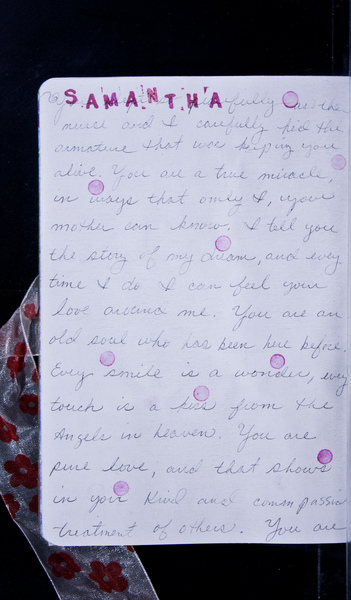 SAMANTHA
carefully as the
music and I carefully hid the
armature that was keeping you
alive. You are a true miracle,
in ways that only I, your
mother can know. I tell you
the story of my dream, and every
time I do I can feel your
love around me. You are an
old soul who has been here before.
Every smile is a wonder, every
touch is a kiss from the
Angels in heaven. You are
pure love, and that shows
in your kind and commpassio
treatment of others. You are